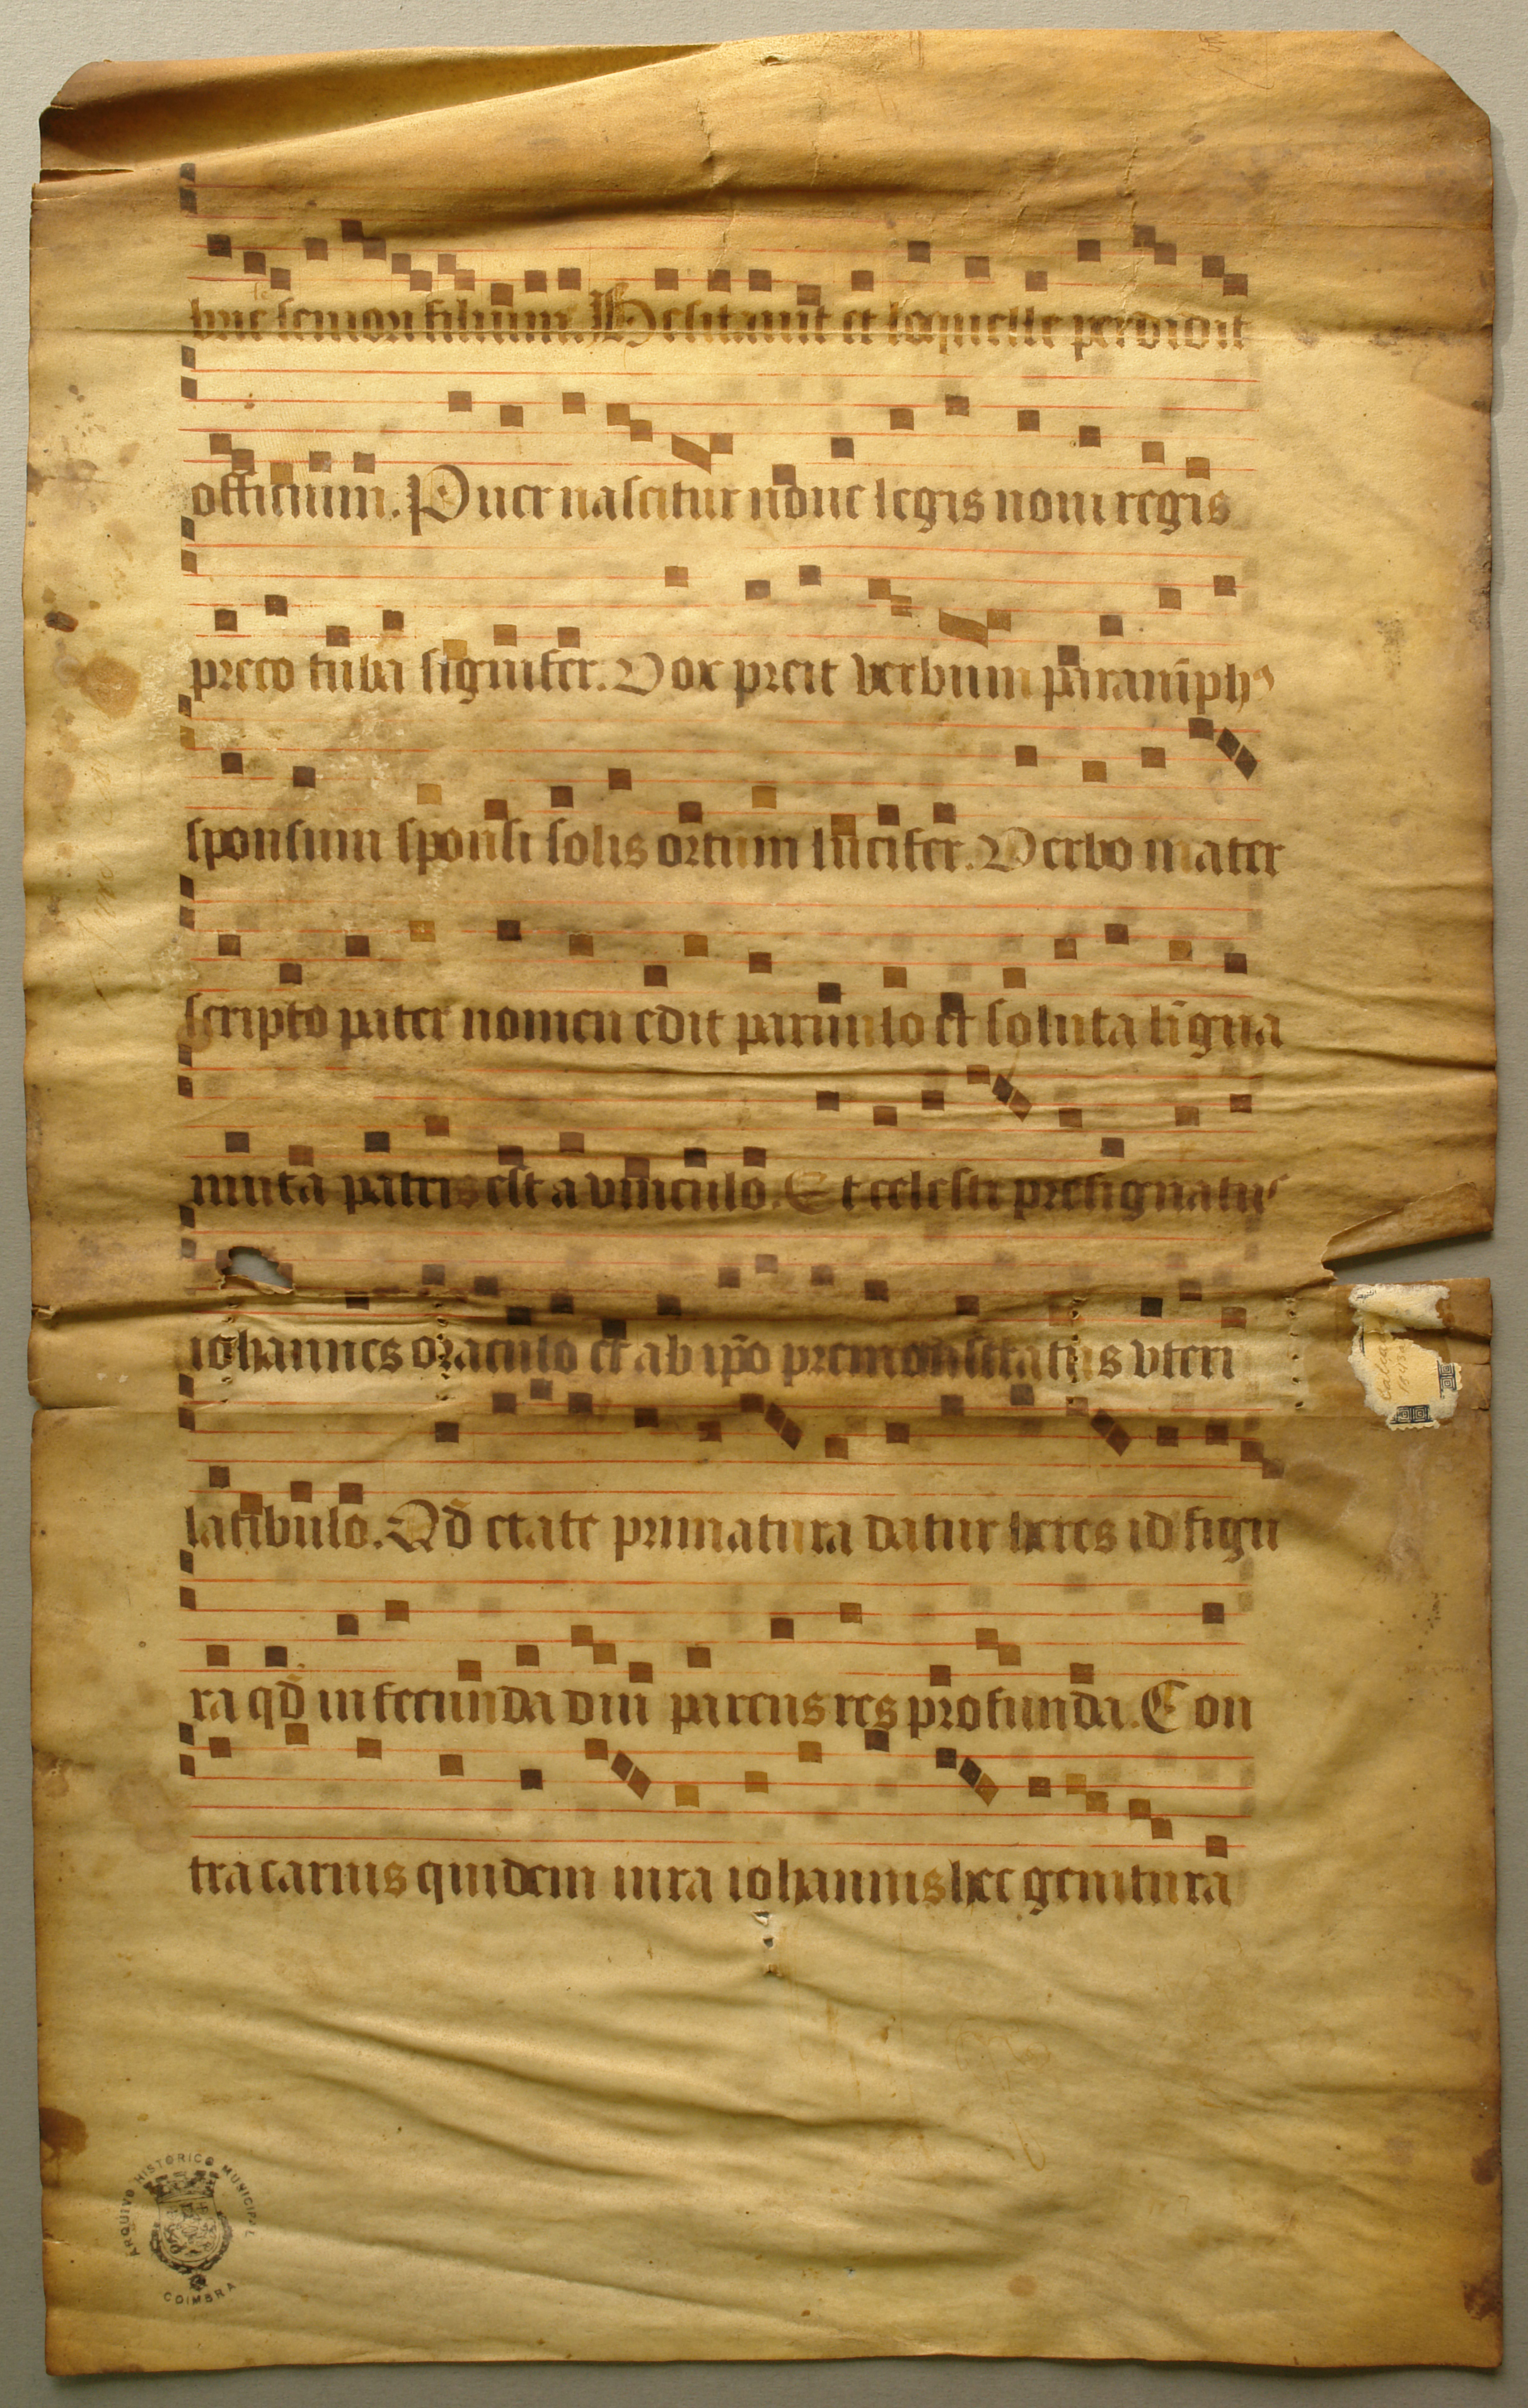 hūc semori filium. Hesitauit et loquelle perdidit
officium. Puer nascitur noue legis noui regis
preco tuba signifer. Vox preit verbum paranīphꝰ
sponsum sponsi solis ortum lucifer. Verbo mater
scripto pater nomen edit paruulo et soluta līgua
muta patris est a vinculo. Et celesti presignatuˢ
iohannes oraculo et ab ip̄o premonstratus vteri
latibulo. Qd̄ etate prematura datur heres id figu
ra qd̄ infecunda diu parens res profunda. Con
tra carnis quidem iura iohannis hec genitura
ARQUIVO HISTORICO MUNICIPAL
COIMBRA